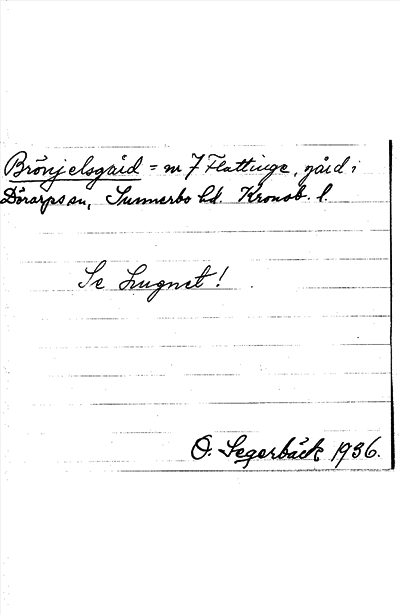 Brönjelsgård = nr 7 Flattinge, gård i
Dörarps sn, Sunnerbo hd. Kronob. l.
Se Lugnet!
O. Segerbäck 1936.